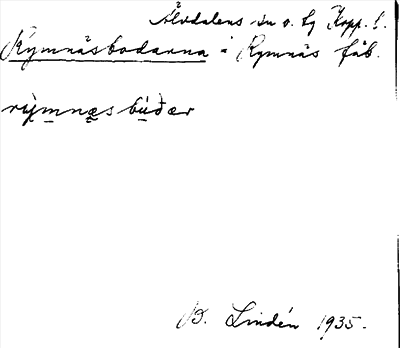 Älvdalens sn o. tg Kopp. l.
Rymnäsbodarna i Rymnäs fäb.
rỳmnæsbùðær
B. Lindén 1935.